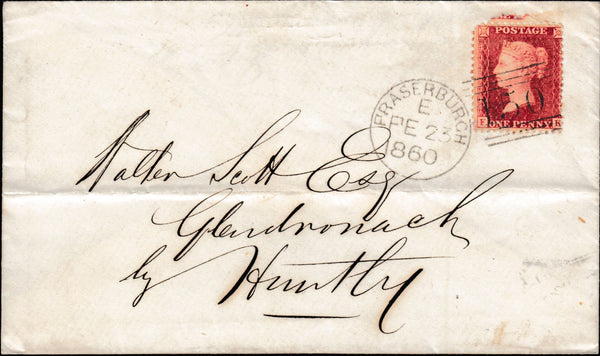 POSTAGE
F ONE PENNY K
150
FRASERBURGH
E
FE 23
1860
Walter Scott Esq
Glendronach
by Huntly